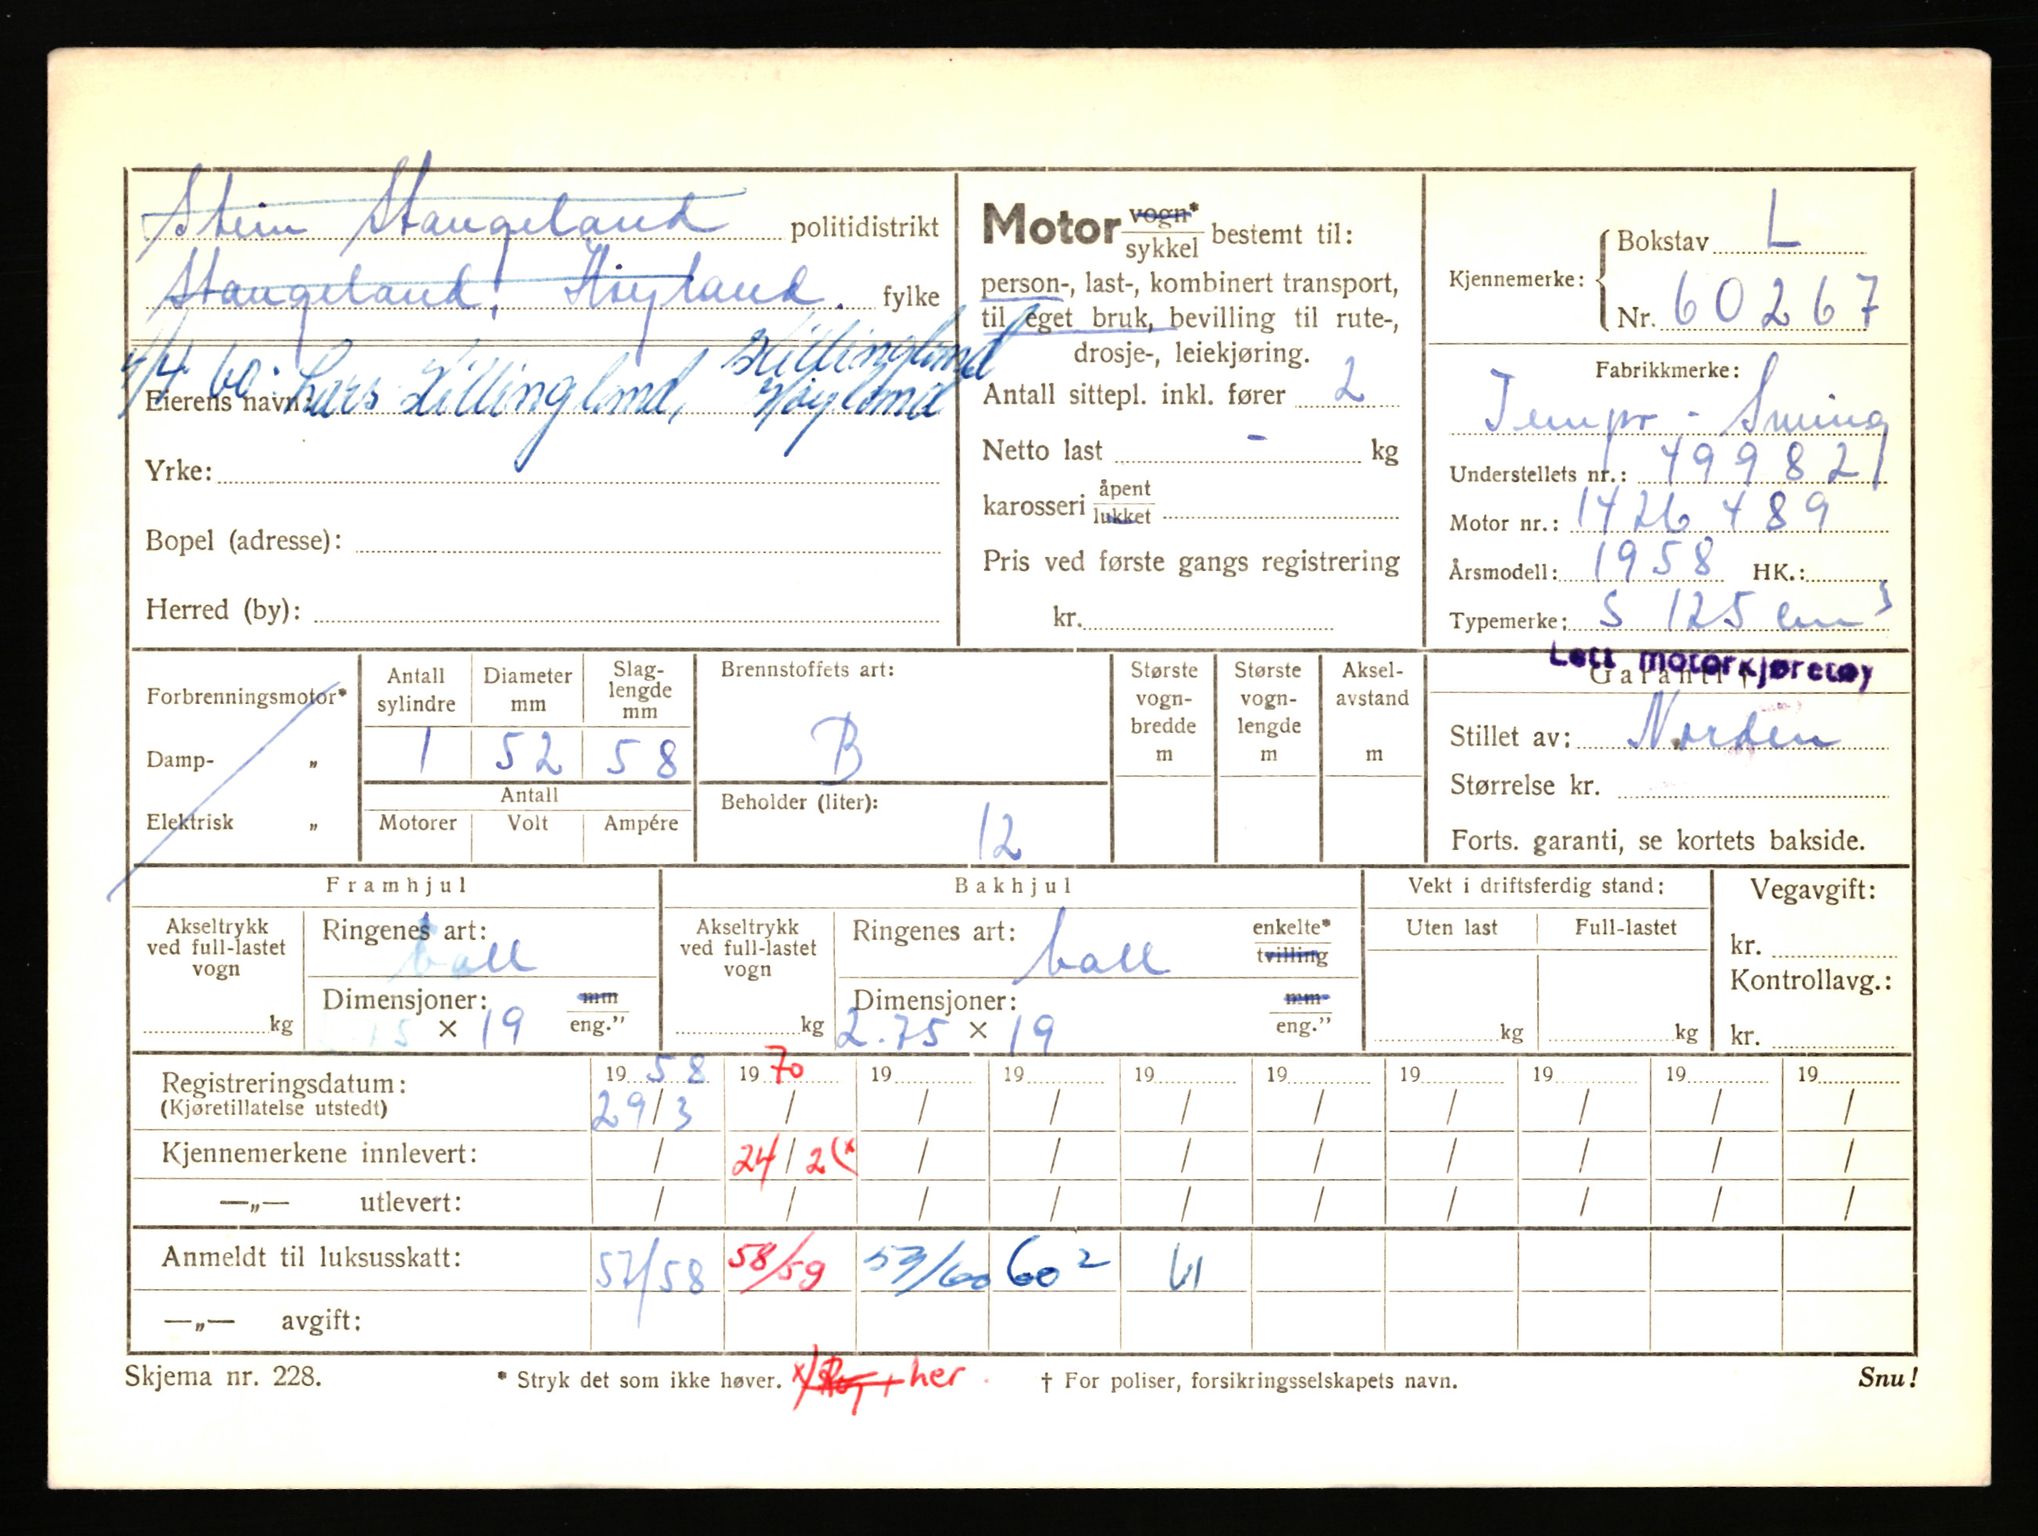 Stein Stangeland politidistrikt
Stangeland, Høyland. fylke
4/4 60. Lars Killingland, Killingland
Eierens navn: Høyland
Yrke:
Bopel (adresse):
Herred (by):
Motor vogn* sykkel bestemt til:
person-, last-, kombinert transport,
til eget bruk, bevilling til rute-,
drosje-, leiekjøring.
Antall sittepl. inkl. fører 2
Netto last - kg
karosseri åpent lukket
Pris ved første gangs registrering
kr.
Kjennemerke: Bokstav L
Nr. 60267
Fabrikkmerke:
Tempo - Swing
Understellets nr.: 499821
Motor nr.: 1426489
Årsmodell: 1958 HK.:
Typemerke: S 125 cm3
Lett motorkjøretøy
Garanti †
Stillet av: Norden
Størrelse kr.
Forts. garanti, se kortets bakside.
Forbrenningsmotor*
Damp- „
Elektrisk „
Antall sylindre Diameter mm Slag-lengde mm
1 52 58
Antall
Motorer Volt Ampére
Brennstoffets art:
B
Beholder (liter):
12
Største vogn-bredde m
Største vogn-lengde m
Aksel-avstand m
Framhjul
Akseltrykk ved full-lastet vogn
kg
Ringenes art:
ball
Dimensjoner: mm
× 19 eng."
Bakhjul
Akseltrykk ved full-lastet vogn
kg
Ringenes art: enkelte*
ball tvilling
Dimensjoner: mm
2.75 × 19 eng."
Vekt i driftsferdig stand:
Uten last Full-lastet
kg kg
Vegavgift:
kr.
Kontrollavg.:
kr.
Registreringsdatum: 19 58 19 70 19 19 19 19 19 19 19 19
(Kjøretillatelse utstedt) 29/3 / / / / / / / / /
Kjennemerkene innlevert: / 24/2 (x / / / / / / / /
—„— utlevert: / / / / / / / / / /
Anmeldt til luksusskatt: 57/58 58/59 59/60 60 2 61
—„— avgift:
Skjema nr. 228. * Stryk det som ikke høver. x/ her † For poliser, forsikringsselskapets navn. Snu!